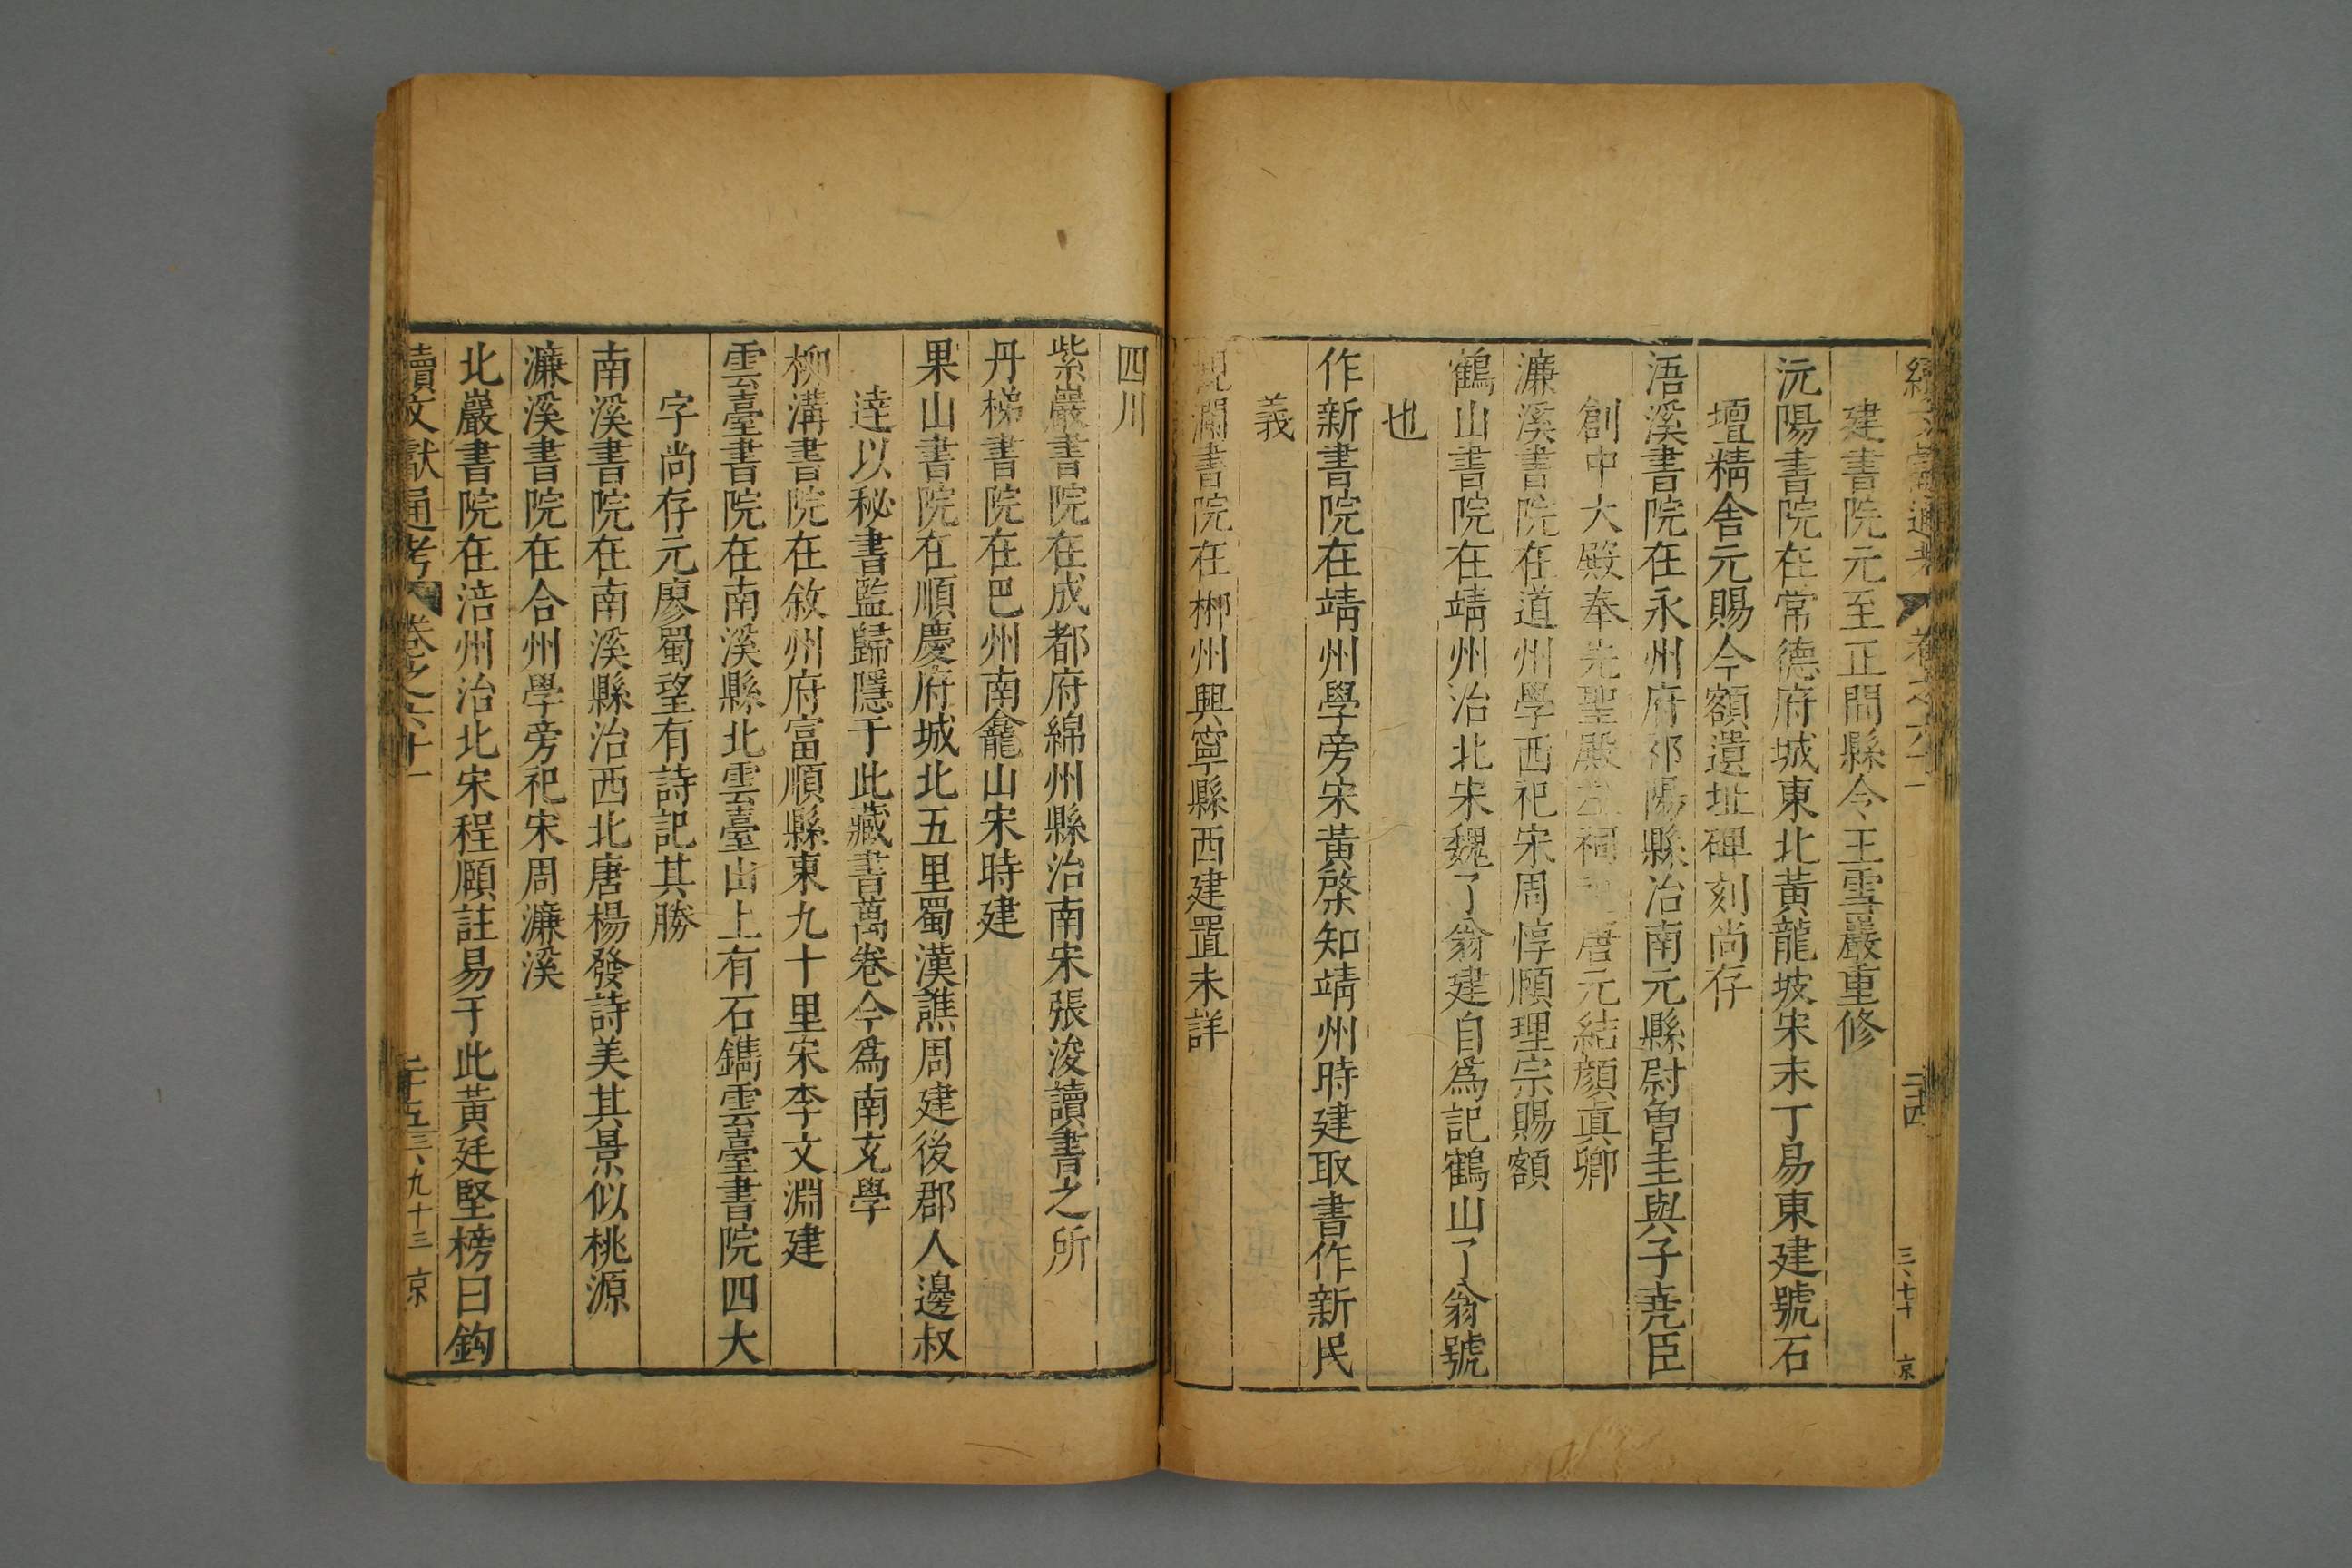 續文獻通考 卷之六十一 二十四 三、七十 京
建書院元至正間縣令王雪巖重修
沅陽書院在常德府城東北黃龍坡宋末丁易東建號石
壇精舍元賜今額遺址碑刻尚存
浯溪書院在永州府祁陽縣治南元縣尉魯圭與子堯臣
創中大殿奉先聖殿 祠 唐元結顏真卿
濂溪書院在道州學西祀宋周惇頤理宗賜額
鶴山書院在靖州治北宋魏了翁建自為記鶴山了翁號
也
作新書院在靖州學旁宋黃棨知靖州時建取書作新民
義
觀瀾書院在郴州興寧縣西建置未詳
四川
紫巖書院在成都府綿州縣治南宋張浚讀書之所
丹梯書院在巴州南龕山宋時建
果山書院在順慶府城北五里蜀漢譙周建後郡人邊叔
逵以秘書監歸隱于此藏書萬卷今為南充學
柳溝書院在敘州府富順縣東九十里宋李文淵建
雲臺書院在南溪縣北雲臺山上有石鐫雲臺書院四大
字尚存元廖蜀望有詩記其勝
南溪書院在南溪縣治西北唐楊發詩美其景似桃源
濂溪書院在合州學旁祀宋周濂溪
北巖書院在涪州治北宋程頤註易于此黃廷堅榜曰鈎
續文獻通考 卷之六十一 二十五 三、九十三 京